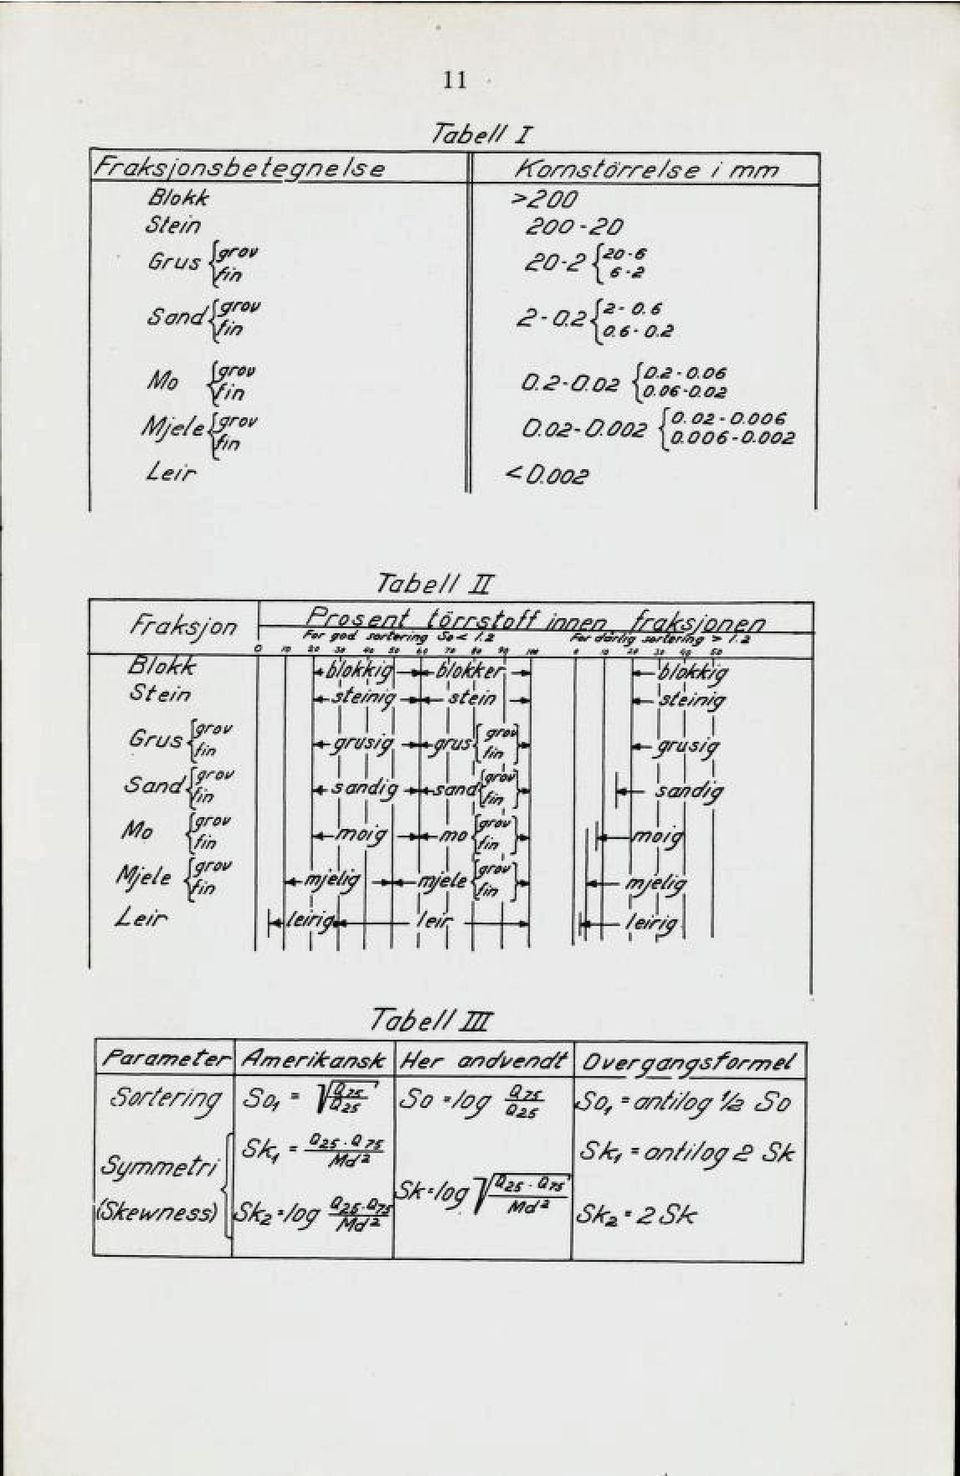 11
Tabell I
Fraksjonsbetegnelse Kornstörrelse i mm
Blokk >200
Stein 200-20
Grus {grov fin 20-2 {20-6 6-2
Sand {grov fin 2-0.2 {2-0.6 0.6-0.2
Mo {grov fin 0.2-0.02 {0.2-0.06 0.06-0.02
Mjele {grov fin 0.02-0.002 {0.02-0.006 0.006-0.002
Leir <0.002
Tabell II
Fraksjon Prosent törrstoff innen fraksjonen
For god sortering So < 1.2 For dårlig sortering > 1.2
0 10 20 30 40 50 60 70 80 90 100 0 10 20 30 40 50
Blokk blokkig blokker blokkig
Stein steinig stein steinig
Grus {grov fin grusig grus {grov fin} grusig
Sand {grov fin sandig sand {grov fin} sandig
Mo {grov fin moig mo {grov fin} moig
Mjele {grov fin mjelig mjele {grov fin} mjelig
Leir leirig leir leirig
Tabell III
Parameter Amerikansk Her andvendt Overgangsformel
Sortering So₁ = √(Q75/Q25) So = log Q75/Q25 So₁ = antilog ½ So
Symmetri (Skewness) { Sk₁ = Q25·Q75/Md² Sk = log √(Q25·Q75/Md²) Sk₁ = antilog 2 Sk
Sk₂ = log Q25·Q75/Md² Sk₂ = 2 Sk